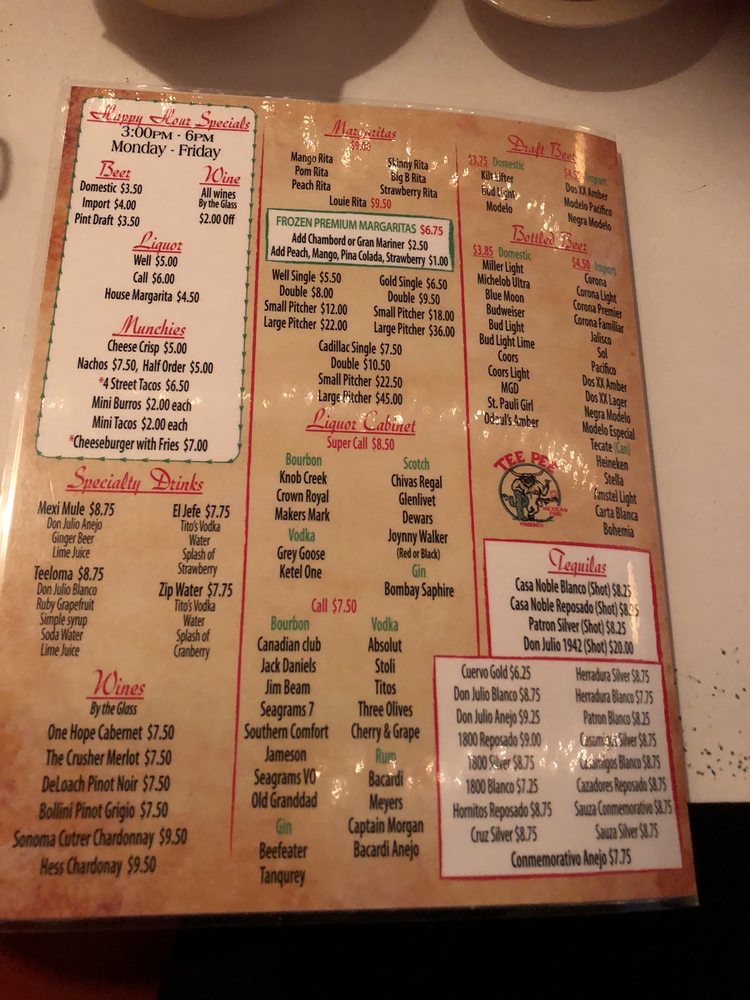 Happy Hour Specials
3:00PM - 6PM
Monday - Friday
Beer
Domestic $3.50
Import $4.00
Pint Draft $3.50
Wine
All wines
By the Glass
$2.00 Off
Liquor
Well $5.00
Call $6.00
House Margarita $4.50
Munchies
Cheese Crisp $5.00
Nachos $7.50, Half Order $5.00
*4 Street Tacos $6.50
Mini Burros $2.00 each
Mini Tacos $2.00 each
*Cheeseburger with Fries $7.00
Specialty Drinks
Mexi Mule $8.75
Don Julio Anejo
Ginger Beer
Lime Juice
Teeloma $8.75
Don Julio Blanco
Ruby Grapefruit
Simple syrup
Soda Water
Lime Juice
El Jefe $7.75
Tito's Vodka
Water
Splash of
Strawberry
Zip Water $7.75
Tito's Vodka
Water
Splash of
Cranberry
Wines
By the Glass
One Hope Cabernet $7.50
The Crusher Merlot $7.50
DeLoach Pinot Noir $7.50
Bollini Pinot Grigio $7.50
Sonoma Cutrer Chardonnay $9.50
Hess Chardonay $9.50
Margaritas
Mango Rita
Pom Rita
Peach Rita
Skinny Rita
Big B Rita
Strawberry Rita
Louie Rita $9.50
FROZEN PREMIUM MARGARITAS $6.75
Add Chambord or Gran Mariner $2.50
Add Peach, Mango, Pina Colada, Strawberry $1.00
Well Single $5.50
Double $8.00
Small Pitcher $12.00
Large Pitcher $22.00
Gold Single $6.50
Double $9.50
Small Pitcher $18.00
Large Pitcher $36.00
Cadillac Single $7.50
Double $10.50
Small Pitcher $22.50
Large Pitcher $45.00
Liquor Cabinet
Super Call $8.50
Bourbon
Knob Creek
Crown Royal
Makers Mark
Vodka
Grey Goose
Ketel One
Scotch
Chivas Regal
Glenlivet
Dewars
Joynny Walker
(Red or Black)
Gin
Bombay Saphire
Call $7.50
Bourbon
Canadian club
Jack Daniels
Jim Beam
Seagrams 7
Southern Comfort
Jameson
Seagrams VO
Old Granddad
Gin
Beefeater
Tanqurey
Vodka
Absolut
Stoli
Titos
Three Olives
Cherry & Grape
Rum
Bacardi
Meyers
Captain Morgan
Bacardi Anejo
Draft Beer
$3.75 Domestic
Kilt Lifter
Bud Light
Modelo
Import
Dos XX Amber
Modelo Pacifico
Negra Modelo
Bottled Beer
$3.85 Domestic
Miller Light
Michelob Ultra
Blue Moon
Budweiser
Bud Light
Bud Light Lime
Coors
Coors Light
MGD
St. Pauli Girl
Odoul's Amber
$4.50 Import
Corona
Corona Light
Corona Premier
Corona Familiar
Jalisco
Sol
Pacifico
Dos XX Amber
Dos XX Lager
Negra Modelo
Modelo Especial
Tecate (Can)
Heineken
Stella
Amstel Light
Carta Blanca
Bohemia
TEE PEE
MEXICAN
FOOD
PHOENIX
Tequilas
Casa Noble Blanco (Shot) $8.25
Casa Noble Reposado (Shot) $8.25
Patron Silver (Shot) $8.25
Don Julio 1942 (Shot) $20.00
Cuervo Gold $6.25
Don Julio Blanco $8.75
Don Julio Anejo $9.25
1800 Reposado $9.00
1800 Silver $8.75
1800 Blanco $7.25
Hornitos Reposado $8.75
Cruz Silver $8.75
Herradura Silver $8.75
Herradura Blanco $7.75
Patron Blanco $8.25
Casamigos Silver $8.75
Casamigos Blanco $8.75
Cazadores Reposado $8.75
Sauza Conmemorativo $8.75
Sauza Silver $8.75
Conmemorativo Anejo $7.75